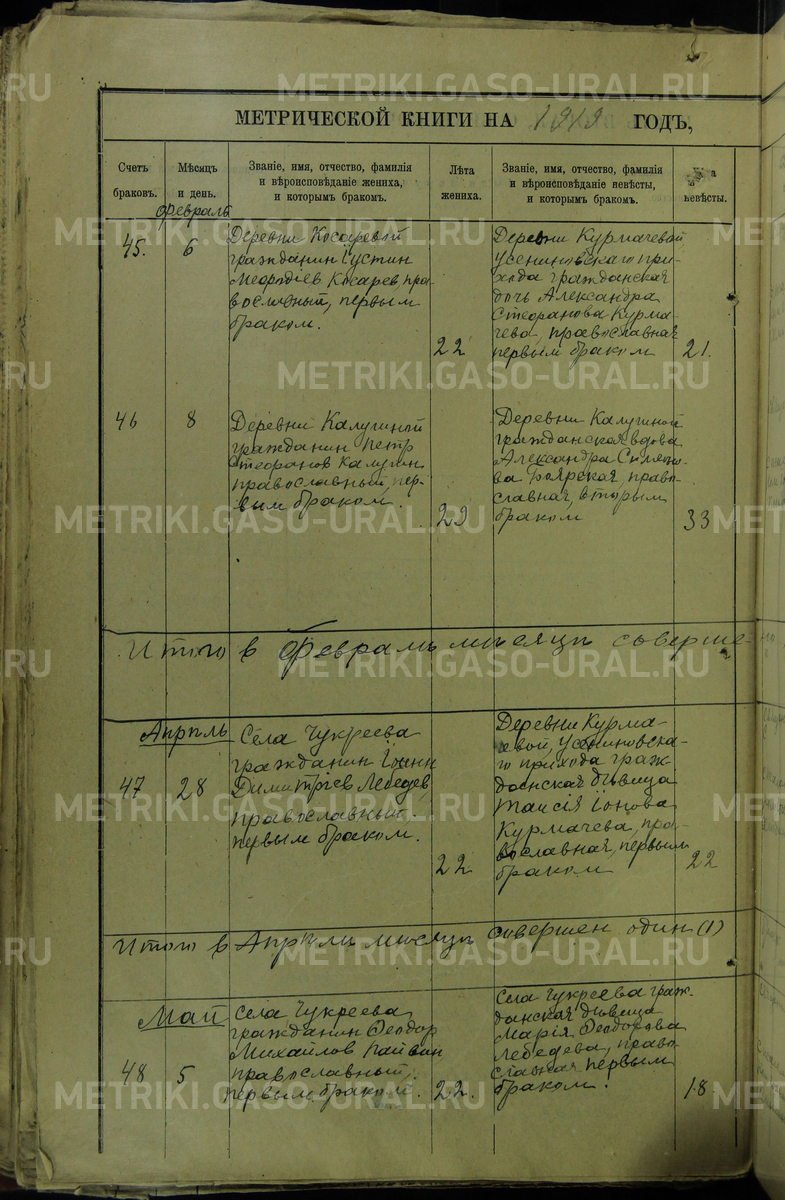 МЕТРИЧЕСКОЙ КНИГИ НА 1919 ГОДЪ,
Счетъ браковъ.
Мѣсяцъ и день.
Званіе, имя, отчество, фамилія
и вѣроисповѣданіе жениха,
и которымъ бракомъ.
Лѣта жениха.
Званіе, имя, отчество, фамилія
и вѣроисповѣданіе невѣсты,
и которымъ бракомъ.
невѣсты.
Февраль
45.
6
Деревни Косаревой
гражданин Іустин
Меѳодіев Косарев пра-
вославный, первым
браком.
22
Деревни Курмачевой
Усениновскаго при-
хода гражданская
дочь Александра
Стефанова Курма-
чева, православная
первым браком
21.
46
8
Деревни Калугиной
гражданин Петр
Стефанов Калугин
православный, пер-
вым браком.
29
Деревни Калугиной
гражданская вдова
Александра
Боярская, право-
славная, вторым
браком
33
Итого в Феврале месяце соверше-
Апрѣль
47
28
Села Чукреева
гражданин Іоанн
Димитріев Лебедев,
православный.
первым браком.
22
Деревни Курма-
чевой, Усениновска-
го прихода граж-
данская дѣвица
Таисія Іонова
Курмачева, пра-
вославная, первым
браком
22
Итого в Апрѣлѣ мѣсяцѣ совершен один (1)
Май
48
5
Села Чукреева
гражданин Ѳеодор
Михайлов Пайвин
православный,
первым браком.
22.
Села Чукреева граж-
данская дѣвица
Марія Ѳеодорова
Лебедева, право-
славная первым
браком.
18
METRIKI.GASO-URAL.RU